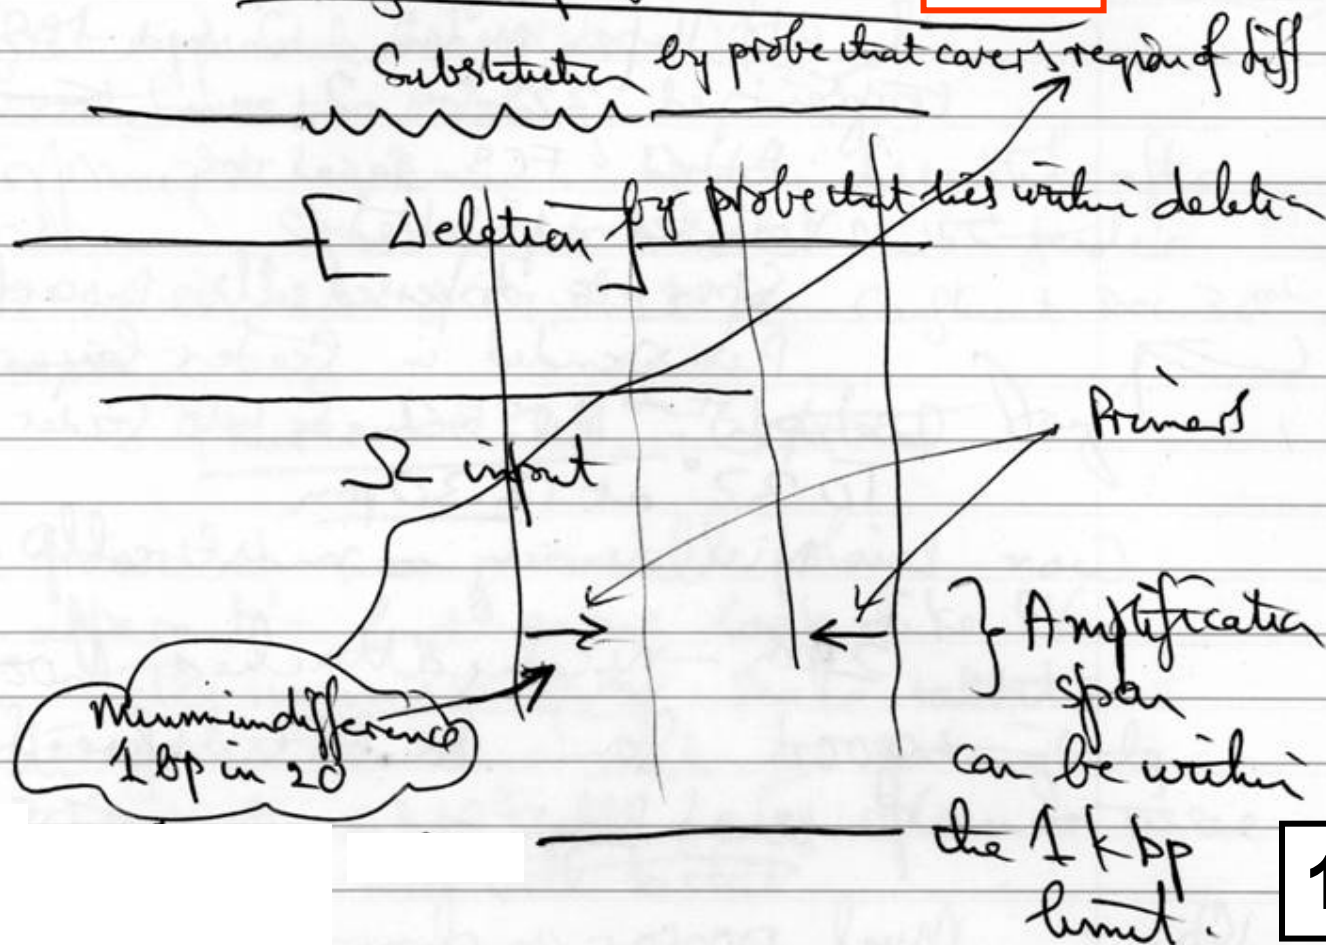 Substitution by probe that covers region of diff
[ Deletion ] by probe that lies within deletion
Primers
Ω input
} Amplification
span
can be within
the 1 kbp
limit.
Minimum difference
1 bp in 20
1